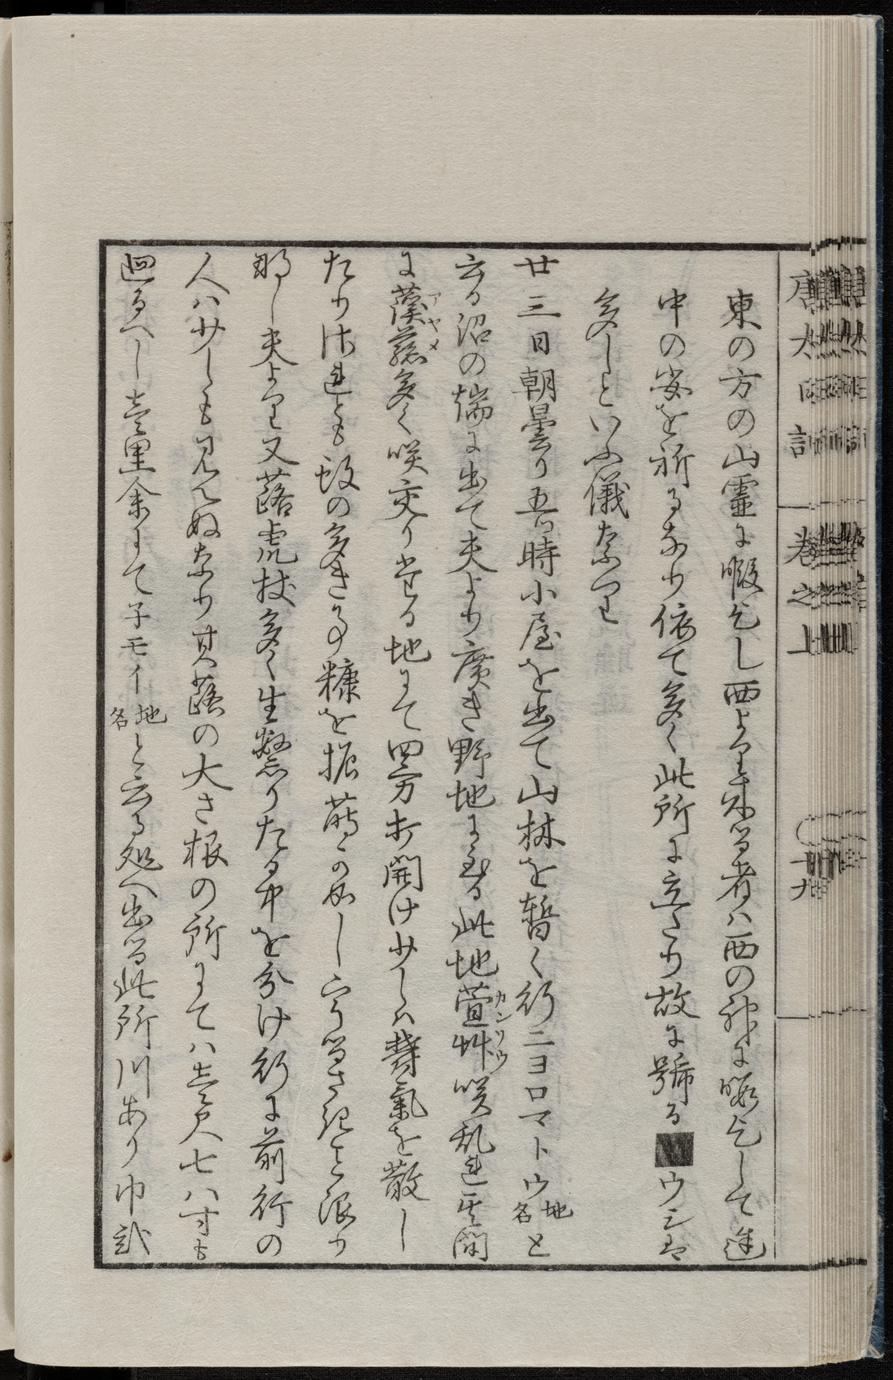 唐太日記 巻之上 十九
東の方の山霊に暇乞し西より来る者ハ西の神に暇乞して途
中の安を祈るなり依て多く此所に立たり故に號る ウシヤ
多しといふ儀なり
廿三日朝曇り五時小屋を出て山林を暫く行ニヨロマトウ地名と
云る沼の端に出て夫より廣き野地に至る此地萱艸カンソウ咲乱れ其間
に 多く咲交り當る地にて四方打開け少しハ欝氣を散し
たり清れとも蚊の多き事糠を振蒔の如しうるさき限り
那し夫より又蕗虎杖多く生繁りたる中を分け行に前行の
人ハ少しも見へぬなり其蕗の大さ根の所にてハ壱尺七八寸も
廻るへし壱里余にて子モイ地名と云る処へ出る此所川あり巾弐